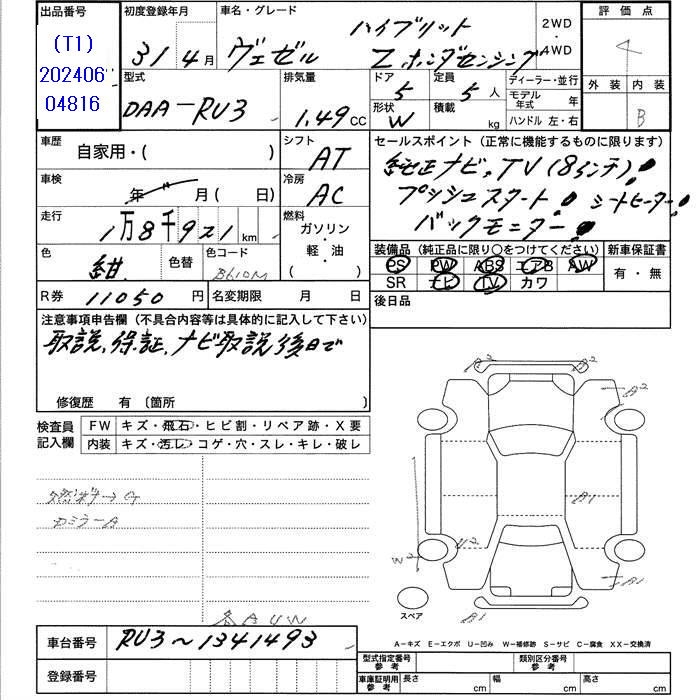 出品番号 初度登録年月 車名・グレード 評価点
(T1) 31 4月 ヴェゼル ハイブリット 2WD
202406 Zホンダセンシング ・4WD
04816 型式 排気量 ドア 定員 ディーラー・並行 外装 内装
DAA-RU3 1.49CC 5 5人 モデル年式 年
形状 積載 ハンドル 左・右 B
W kg
車歴 自家用・( ) シフト AT セールスポイント(正常に機能するものに限ります)
純正ナビ、TV(8インチ)!
車検 年 月(日) 冷房 AC プッシュスタート! シートヒーター!
バックモニター!
走行 1万8千921km 燃料 ガソリン・軽・油( )
装備品(純正品に限り〇をつけてください) 新車保証書
色 紺 色替 色コード B610M
PS PW ABS エアB AW 有・無
SR ナビ TV カワ
R券 11050円 名変期限 月 日 後日品
注意事項申告欄(不具合内容等は具体的に記入して下さい)
取説、保証、ナビ取説後日で
修復歴 有〔箇所 〕
検査員記入欄 FW キズ・飛石・ヒビ割・リペア跡・X要
内装 キズ・汚レ・コゲ・穴・スレ・キレ・破レ
A2 A2
A2
B1
カミラーA
W2 U2
B1
スペア B1
各AUW
A-キズ E-エクボ U-凹み W-補修跡 S-サビ C-腐食 XX-交換済
車台番号 RU3~1341493
型式指定番号参考 類別区分番号参考
登録番号 車庫証明用参考 長さ cm 幅 cm 高さ cm